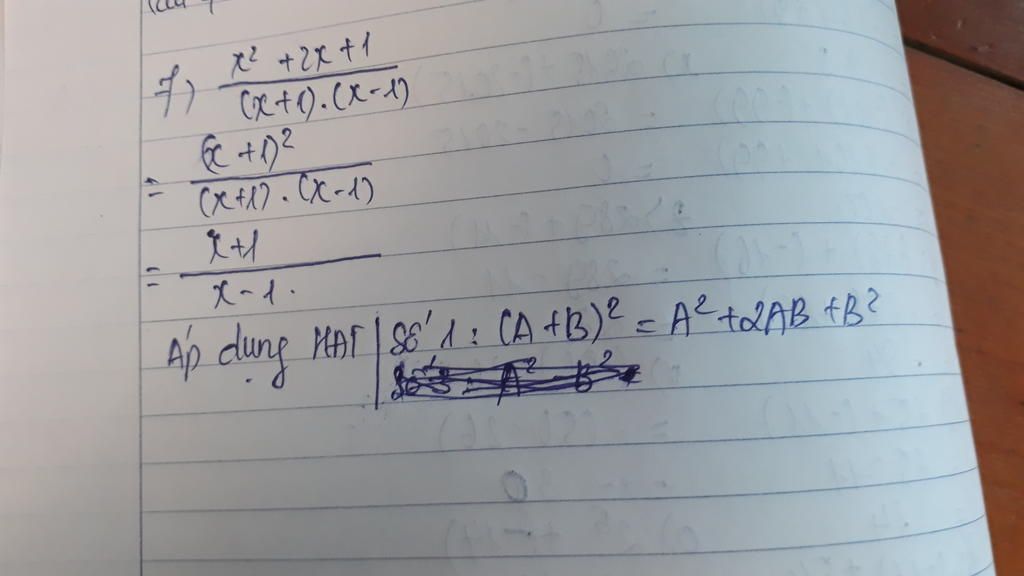 7) x² + 2x + 1
(x+1).(x-1)
= (x+1)²
(x+1).(x-1)
= x+1
x-1.
Áp dụng HĐT | Số 1 : (A+B)² = A² + 2AB + B²